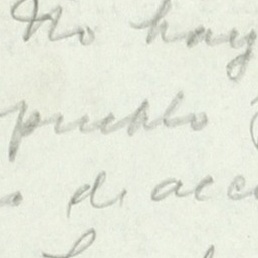 No hay
pueblo
de acc